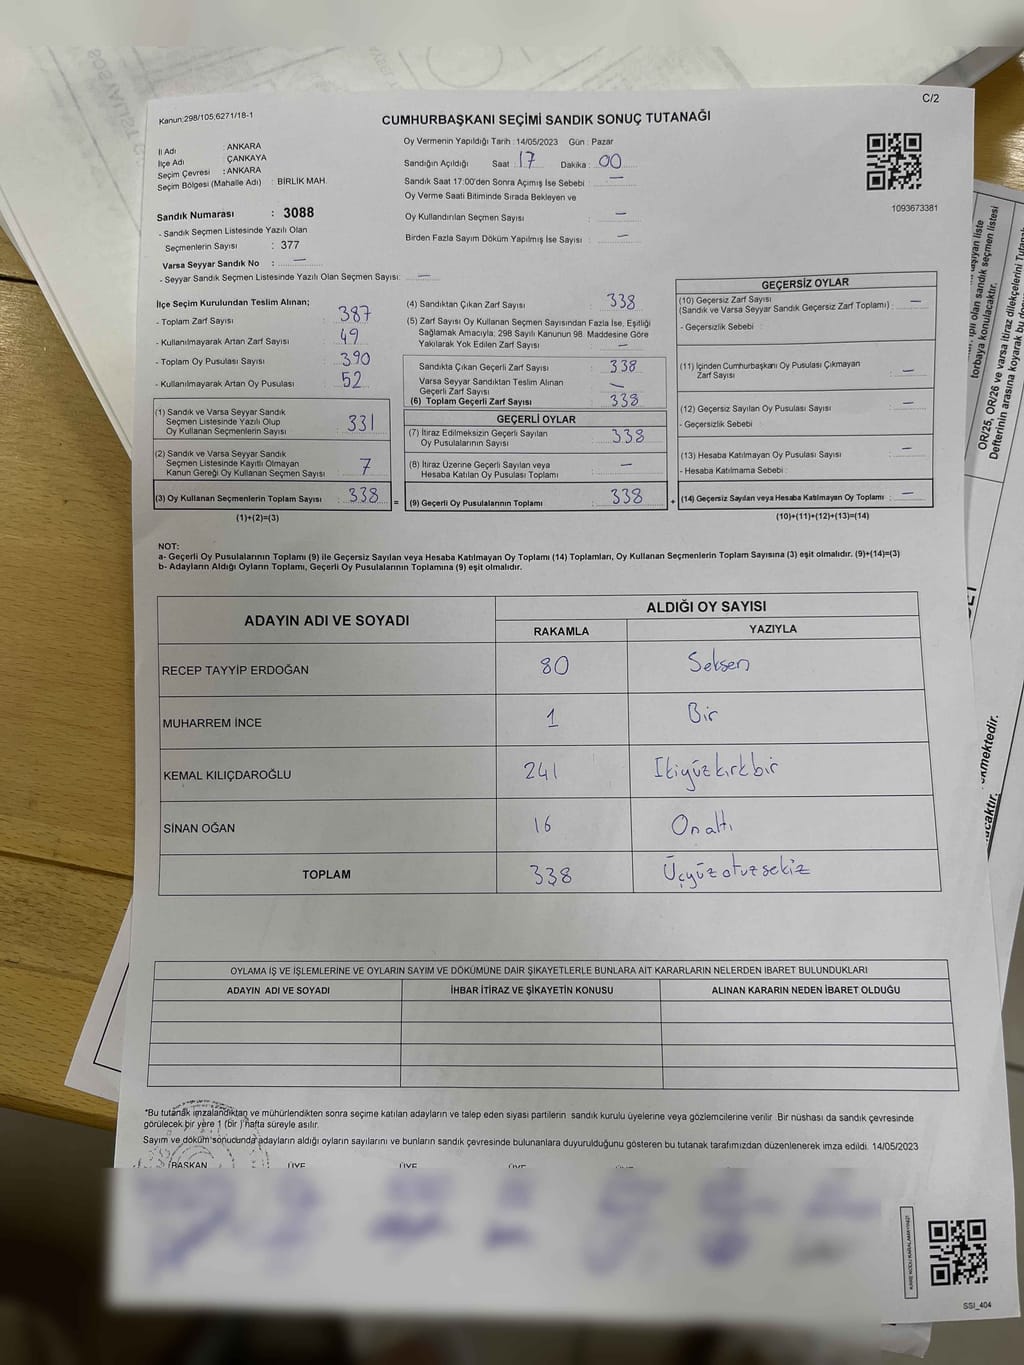 C/2
Kanun:298/105,6271/18-1
CUMHURBAŞKANI SEÇİMİ SANDIK SONUÇ TUTANAĞI
İl Adı : ANKARA
İlçe Adı : ÇANKAYA
Seçim Çevresi : ANKARA
Seçim Bölgesi (Mahalle Adı) : BİRLİK MAH.
Sandık Numarası : 3088
- Sandık Seçmen Listesinde Yazılı Olan
Seçmenlerin Sayısı : 377
Varsa Seyyar Sandık No : —
- Seyyar Sandık Seçmen Listesinde Yazılı Olan Seçmen Sayısı: —
Oy Vermenin Yapıldığı Tarih : 14/05/2023 Gün : Pazar
Sandığın Açıldığı Saat : 17 Dakika : 00
Sandık Saat 17:00'den Sonra Açımış İse Sebebi : —
Oy Verme Saati Bitiminde Sırada Bekleyen ve
Oy Kullandırılan Seçmen Sayısı : —
Birden Fazla Sayım Döküm Yapılmış İse Sayısı : —
1093673381
İlçe Seçim Kurulundan Teslim Alınan;
- Toplam Zarf Sayısı : 387
- Kullanılmayarak Artan Zarf Sayısı : 49
- Toplam Oy Pusulası Sayısı : 390
- Kullanılmayarak Artan Oy Pusulası : 52
(1) Sandık ve Varsa Seyyar Sandık
Seçmen Listesinde Yazılı Olup
Oy Kullanan Seçmenlerin Sayısı : 331
(2) Sandık ve Varsa Seyyar Sandık
Seçmen Listesinde Kayıtlı Olmayan
Kanun Gereği Oy Kullanan Seçmen Sayısı : 7
(3) Oy Kullanan Seçmenlerin Toplam Sayısı : 338 =
(1)+(2)=(3)
(4) Sandıktan Çıkan Zarf Sayısı : 338
(5) Zarf Sayısı Oy Kullanan Seçmen Sayısından Fazla İse, Eşitliği
Sağlamak Amacıyla; 298 Sayılı Kanunun 98. Maddesine Göre
Yakılarak Yok Edilen Zarf Sayısı : —
Sandıkta Çıkan Geçerli Zarf Sayısı : 338
Varsa Seyyar Sandıktan Teslim Alınan
Geçerli Zarf Sayısı : —
(6) Toplam Geçerli Zarf Sayısı : 338
GEÇERLİ OYLAR
(7) İtiraz Edilmeksizin Geçerli Sayılan
Oy Pusulalarının Sayısı : 338
(8) İtiraz Üzerine Geçerli Sayılan veya
Hesaba Katılan Oy Pusulası Toplamı : —
(9) Geçerli Oy Pusulalarının Toplamı : 338 +
GEÇERSİZ OYLAR
(10) Geçersiz Zarf Sayısı
(Sandık ve Varsa Seyyar Sandık Geçersiz Zarf Toplamı) : —
- Geçersizlik Sebebi :
(11) İçinden Cumhurbaşkanı Oy Pusulası Çıkmayan
Zarf Sayısı : —
(12) Geçersiz Sayılan Oy Pusulası Sayısı : —
- Geçersizlik Sebebi :
(13) Hesaba Katılmayan Oy Pusulası Sayısı : —
- Hesaba Katılmama Sebebi :
(14) Geçersiz Sayılan veya Hesaba Katılmayan Oy Toplamı : —
(10)+(11)+(12)+(13)=(14)
NOT:
a- Geçerli Oy Pusulalarının Toplamı (9) ile Geçersiz Sayılan veya Hesaba Katılmayan Oy Toplamı (14) Toplamları, Oy Kullanan Seçmenlerin Toplam Sayısına (3) eşit olmalıdır. (9)+(14)=(3)
b- Adayların Aldığı Oyların Toplamı, Geçerli Oy Pusulalarının Toplamına (9) eşit olmalıdır.
ADAYIN ADI VE SOYADI
ALDIĞI OY SAYISI
RAKAMLA YAZIYLA
RECEP TAYYİP ERDOĞAN 80 Seksen
MUHARREM İNCE 1 Bir
KEMAL KILIÇDAROĞLU 241 İkiyüzkırkbir
SİNAN OĞAN 16 Onaltı
TOPLAM 338 Üçyüzotuzsekiz
OYLAMA İŞ VE İŞLEMLERİNE VE OYLARIN SAYIM VE DÖKÜMÜNE DAİR ŞİKAYETLERLE BUNLARA AİT KARARLARIN NELERDEN İBARET BULUNDUKLARI
ADAYIN ADI VE SOYADI İHBAR İTİRAZ VE ŞİKAYETİN KONUSU ALINAN KARARIN NEDEN İBARET OLDUĞU
*Bu tutanak imzalandıktan ve mühürlendikten sonra seçime katılan adayların ve talep eden siyasi partilerin sandık kurulu üyelerine veya gözlemcilerine verilir. Bir nüshası da sandık çevresinde
görülecek bir yere 1 (bir ) hafta süreyle asılır.
Sayım ve döküm sonucunda adayların aldığı oyların sayılarını ve bunların sandık çevresinde bulunanlara duyurulduğunu gösteren bu tutanak tarafımızdan düzenlenerek imza edildi. 14/05/2023
BAŞKAN ÜYE ÜYE ÜYE
SSI_404
torbaya konulacaktır.
OR/25, OR/26 ve varsa itiraz dilekçelerini
Defterinin arasına koyarak bu